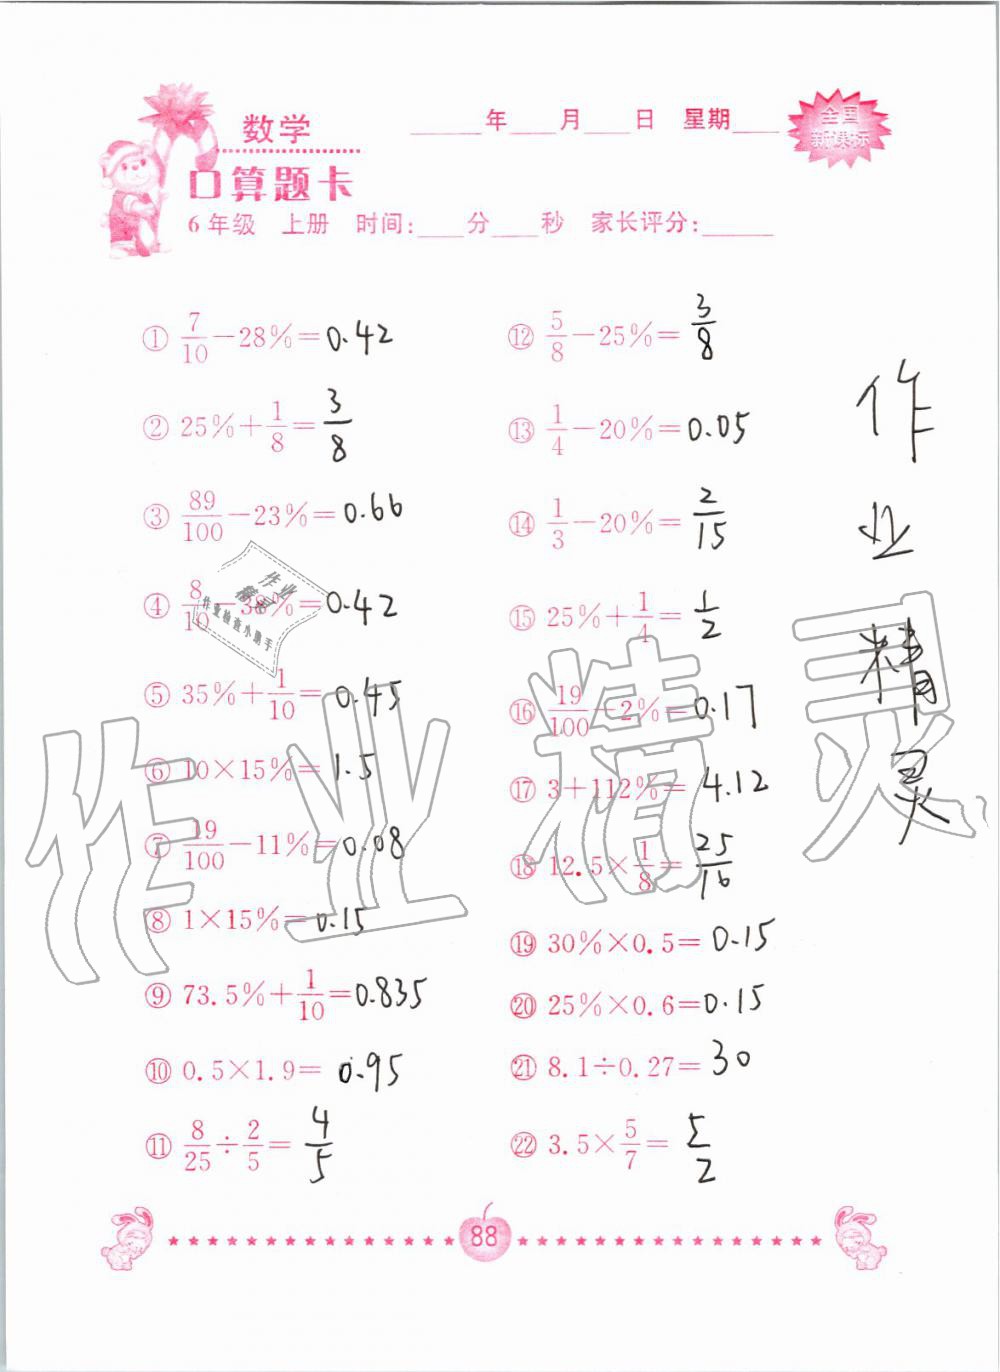 数学
____年____月____日 星期____
全国
新课标
口算题卡
6年级 上册 时间:____分____秒 家长评分:______
① 7/10-28%=0.42
② 25%+1/8=3/8
③ 89/100-23%=0.66
④ 8/10-38%=0.42
⑤ 35%+1/10=0.45
⑥ 10×15%=1.5
⑦ 19/100-11%=0.08
⑧ 1×15%=0.15
⑨ 73.5%+1/10=0.835
⑩ 0.5×1.9=0.95
⑪ 8/25÷2/5=4/5
⑫ 5/8-25%=3/8
⑬ 1/4-20%=0.05
⑭ 1/3-20%=2/15
⑮ 25%+1/4=1/2
⑯ 19/100-2%=0.17
⑰ 3+112%=4.12
⑱ 12.5×1/8=25/16
⑲ 30%×0.5=0.15
⑳ 25%×0.6=0.15
㉑ 8.1÷0.27=30
㉒ 3.5×5/7=5/2
作业精灵
作业
精灵
作业检查小助手
作业精灵
88